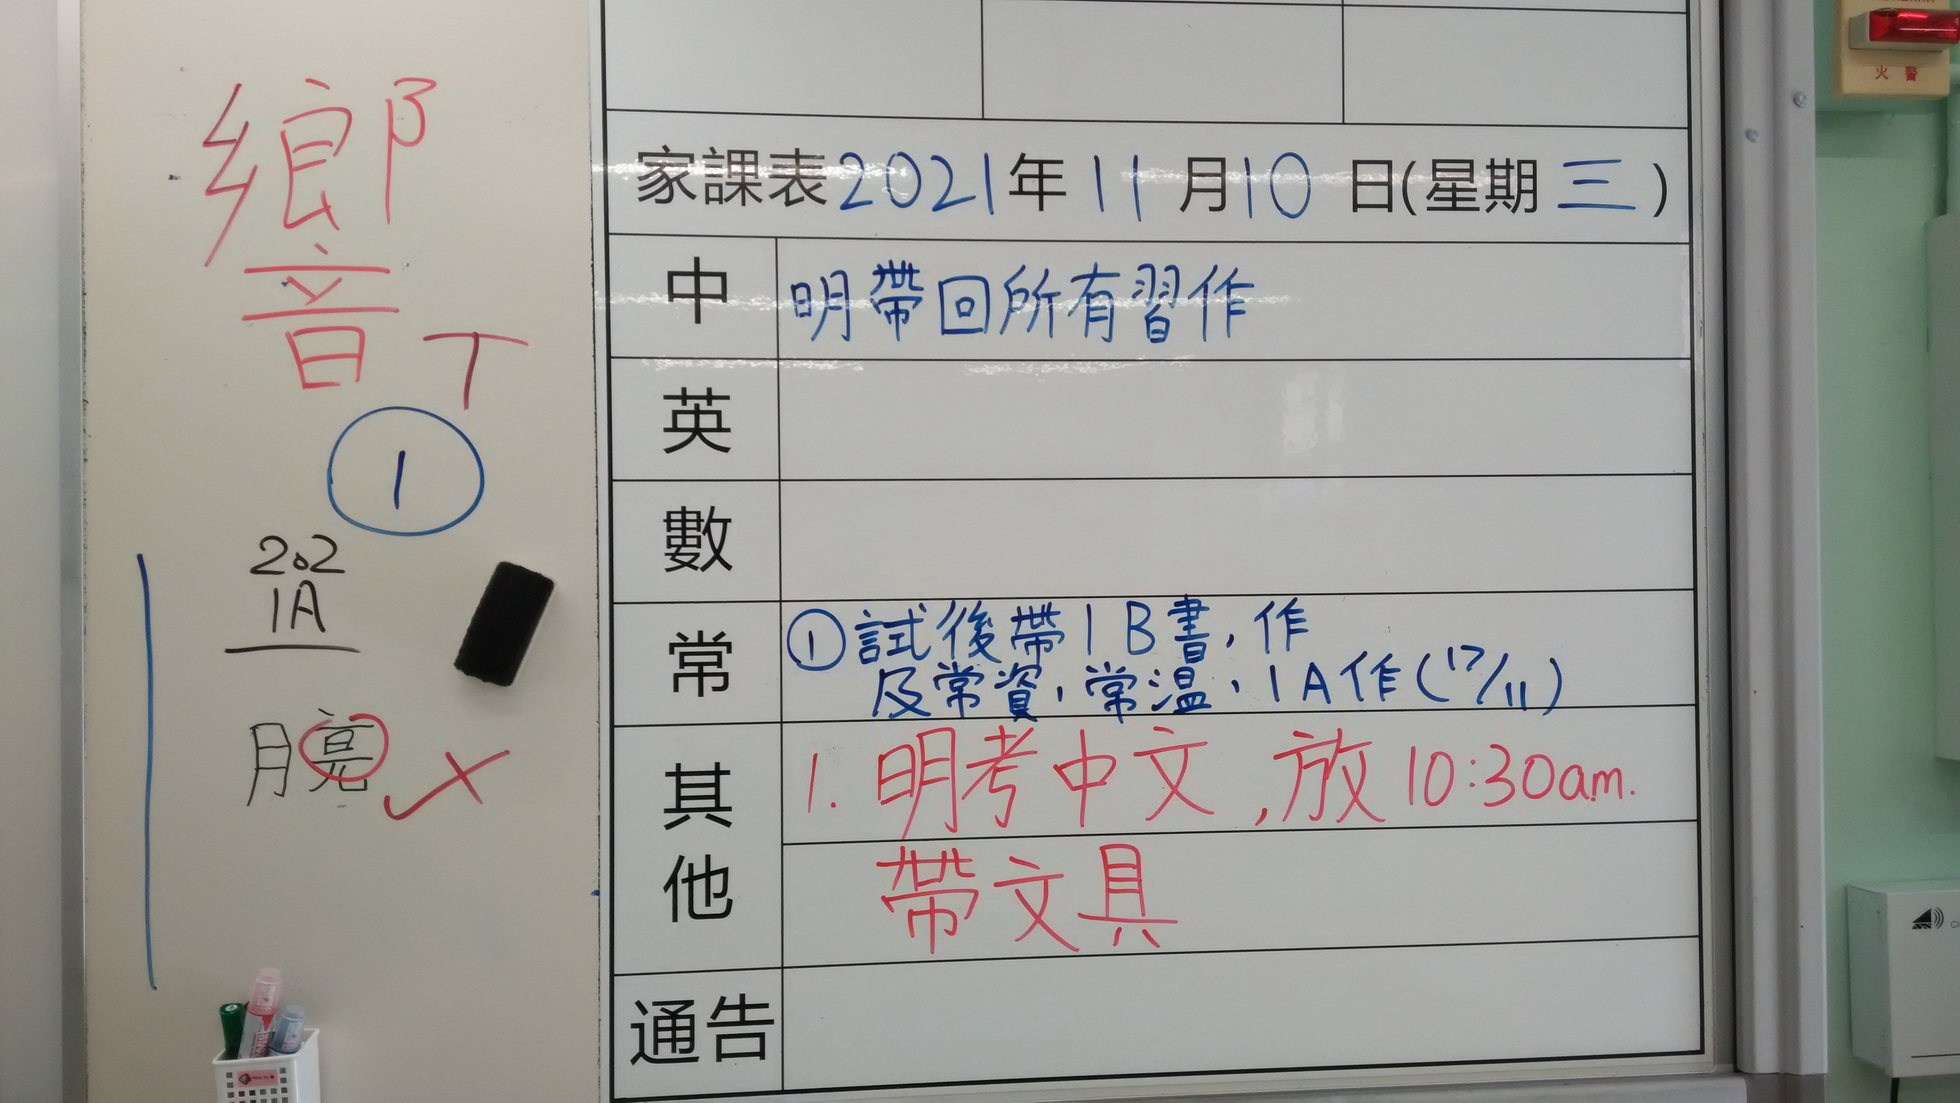 鄉
音
丁
1
202
1A
月亮
家課表2021年11月10日(星期三)
中 明帶回所有習作
英
數
常 ①試後帶1B書,作
及常資,常溫,1A作(17/11)
其他 1. 明考中文,放10:30am.
帶文具
通告
火警